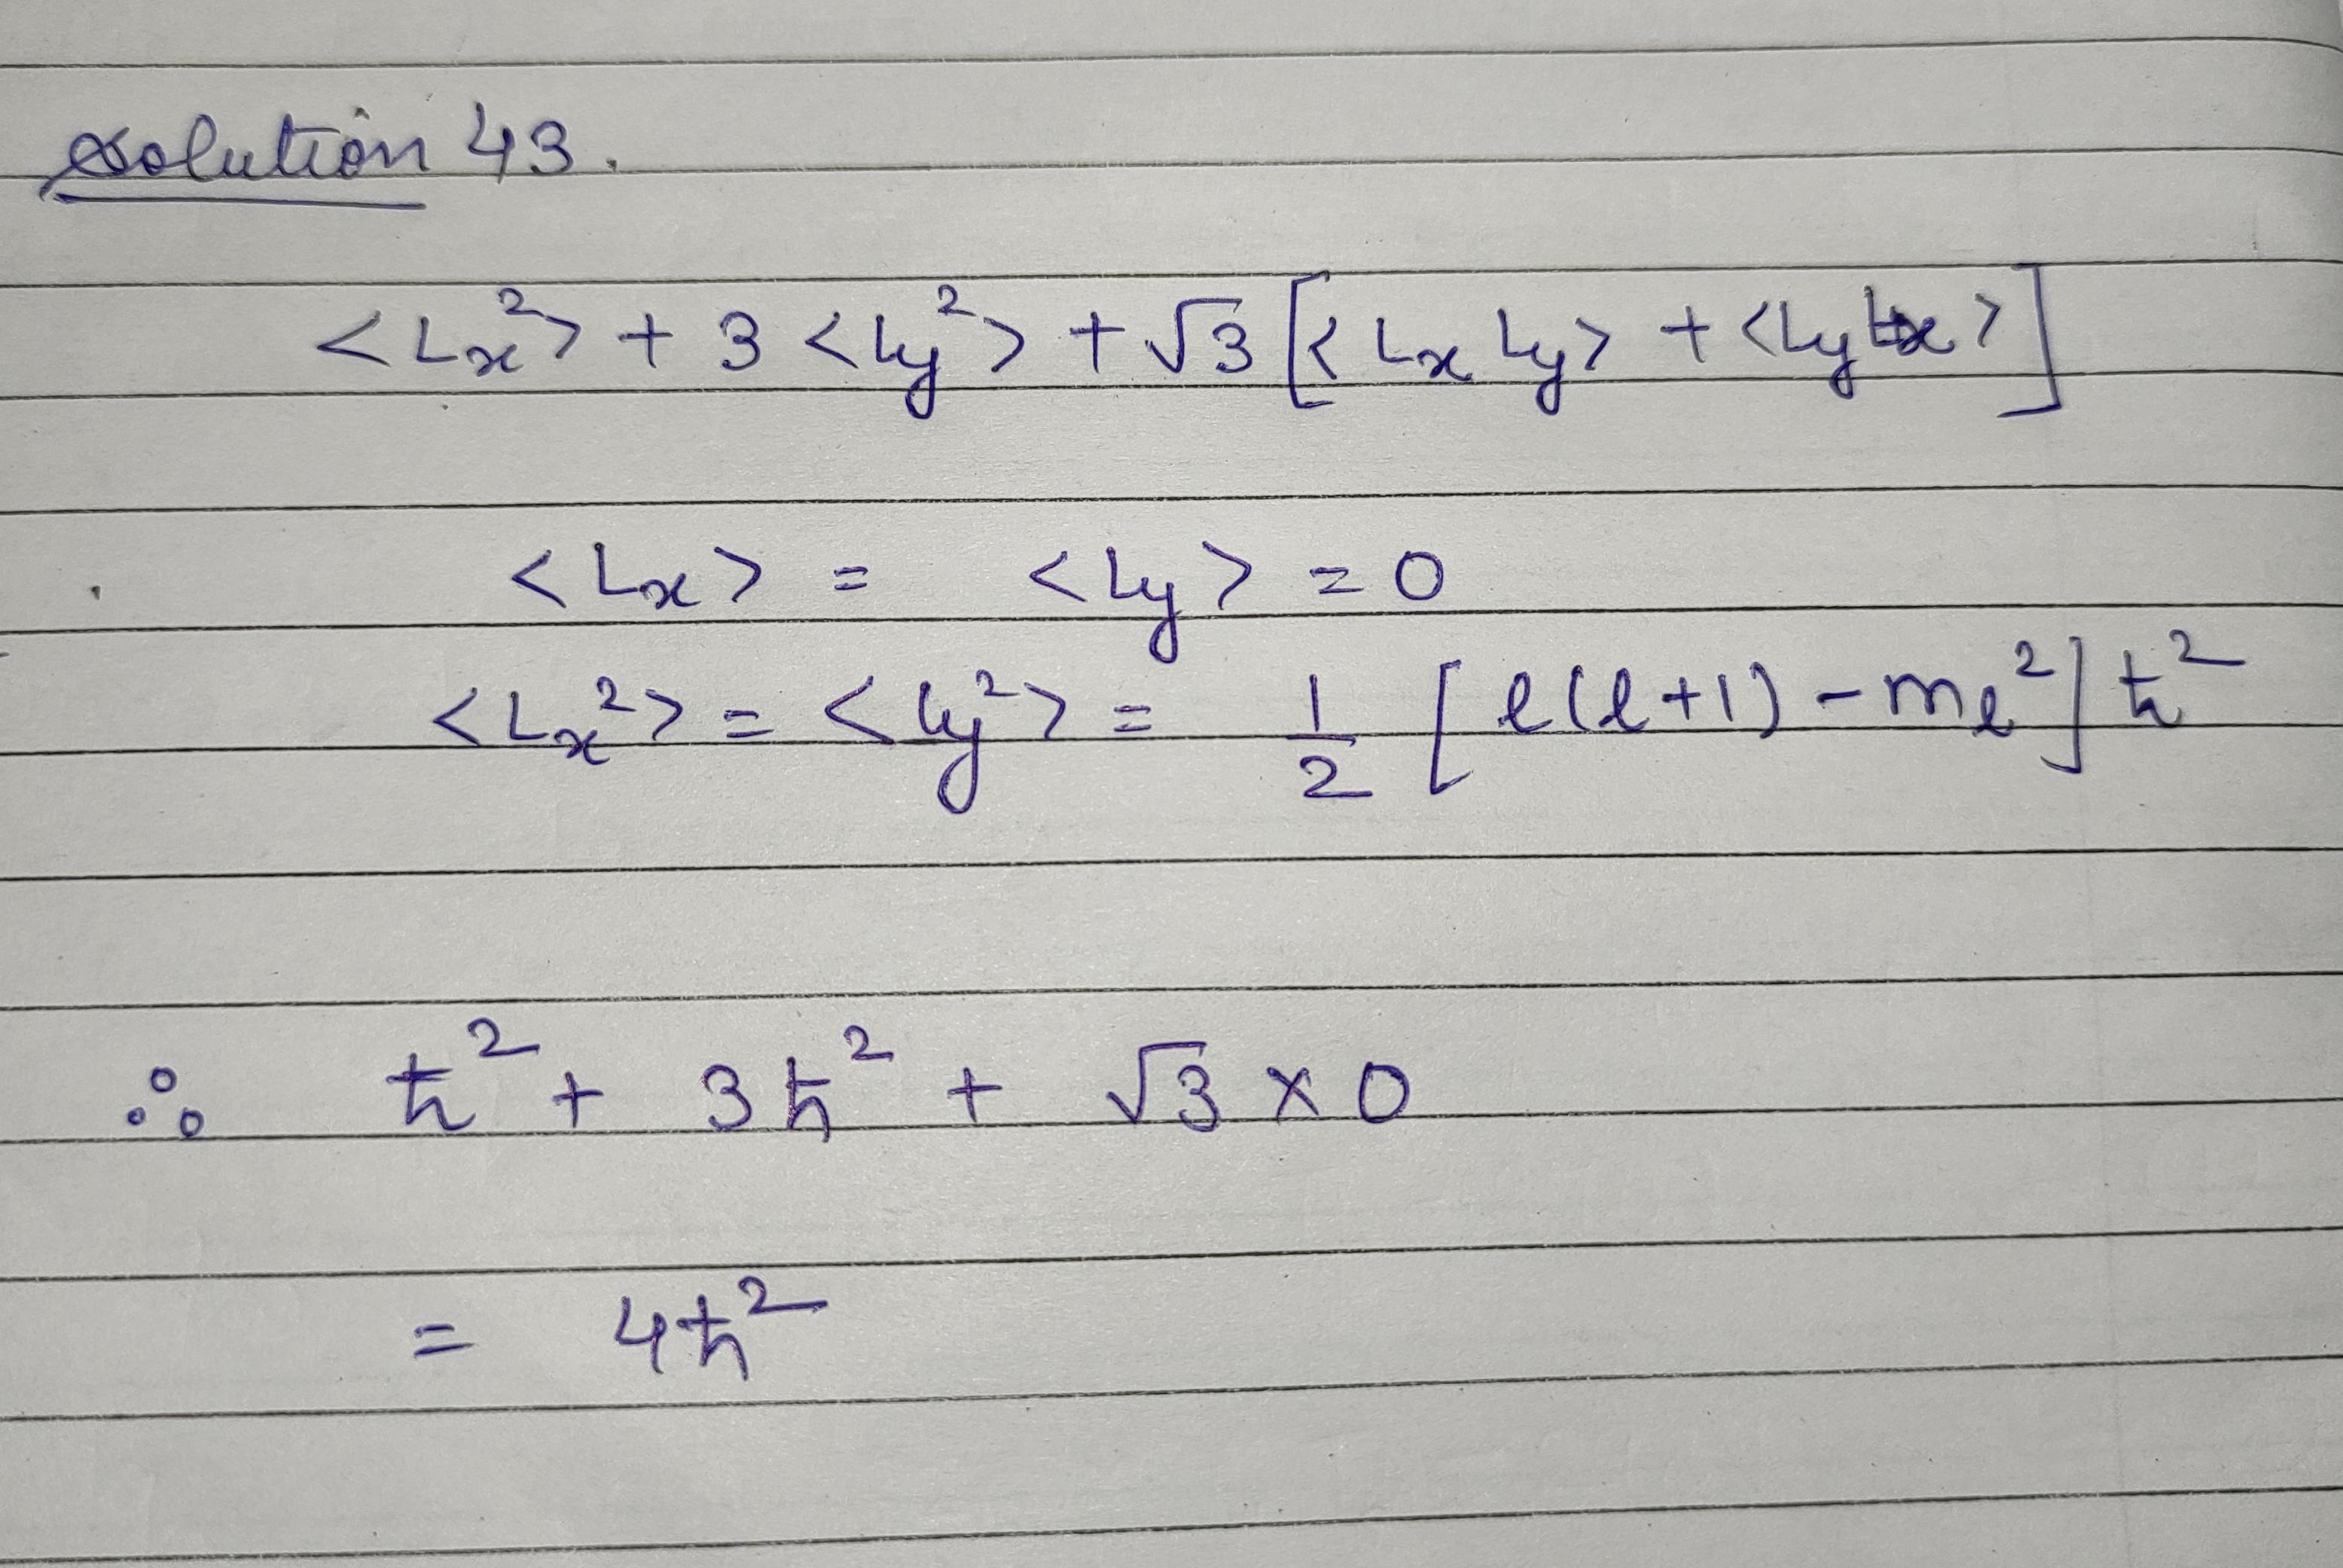 Solution 43.
<Lx²> + 3 <Ly²> + √3 [<Lx Ly> + <Ly Lx>]
<Lx> = <Ly> = 0
<Lx²> = <Ly²> = 1/2 [l(l+1) - ml²] ħ²
∴ ħ² + 3ħ² + √3 × 0
= 4ħ²